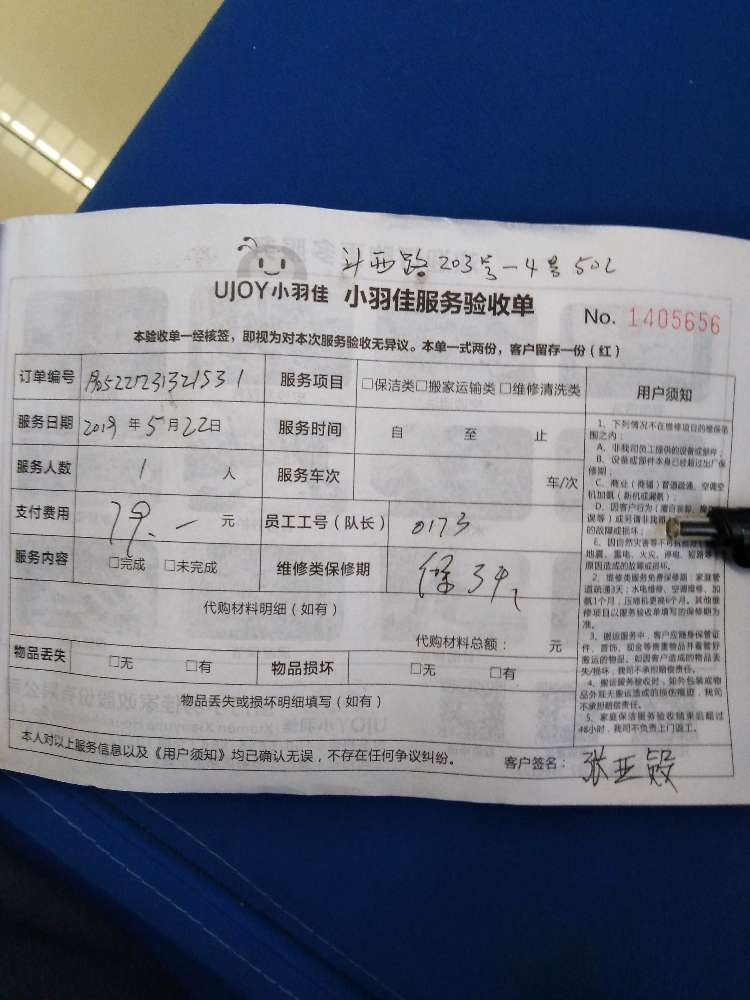 斗西路203号-4号502
UJOY小羽佳 小羽佳服务验收单 No. 1405656
本验收单一经核签，即视为对本次服务验收无异议。本单一式两份，客户留存一份（红）
订单编号 服务项目 □保洁类□搬家运输类□维修清洗类 用户须知
服务日期 2019年5月22日 服务时间 自 至 止
服务人数 1 人 服务车次 车/次
支付费用 元 员工工号（队长） 0173
服务内容 □完成 □未完成 维修类保修期
代购材料明细（如有）
代购材料总额： 元
物品丢失 □无 □有 物品损坏 □无 □有
物品丢失或损坏明细填写（如有）
本人对以上服务信息以及《用户须知》均已确认无误，不存在任何争议纠纷。 客户签名：张亚毅
1、下列情况不在维修项目的维保范
围之内：
A、非我司员工提供的设备或部件；
B、设备或部件本身已经超过出厂保
修期；
C、商业（商铺）管道疏通、空调空
机加氟（新机或漏氟）
的故障或损坏；
E、因自然灾害等不可抗
地震、雷电、火灾、停电、短路等
原因造成的故障或损坏。
2、维修类服务免费保修期：家庭管
道疏通3天；水电维修、空调维修、加
氟1个月；压缩机更换6个月。其他维
修项目以服务验收单填写的保修期为
准。
3、搬运服务中，客户应随身保管证
件、首饰、现金等贵重物品并看管好
搬运的物品。如因客户造成的物品丢
失/损坏，我司不承担赔偿责任。
4、搬运服务验收时，如外包装或物
品外观无搬运造成的损伤痕迹，我司
不承担赔偿责任。
5、家庭保洁服务验收结束后超过
48小时，我司不负责上门返工。